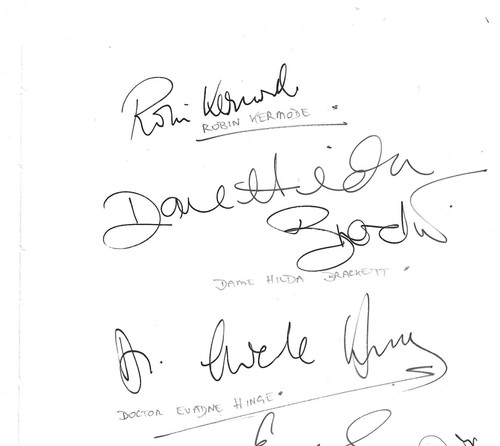 Robin Kermode
ROBIN KERMODE
Dame Hilda
Brackett
DAME HILDA BRACKETT
Dr. Evadne Hinge
DOCTOR EVADNE HINGE